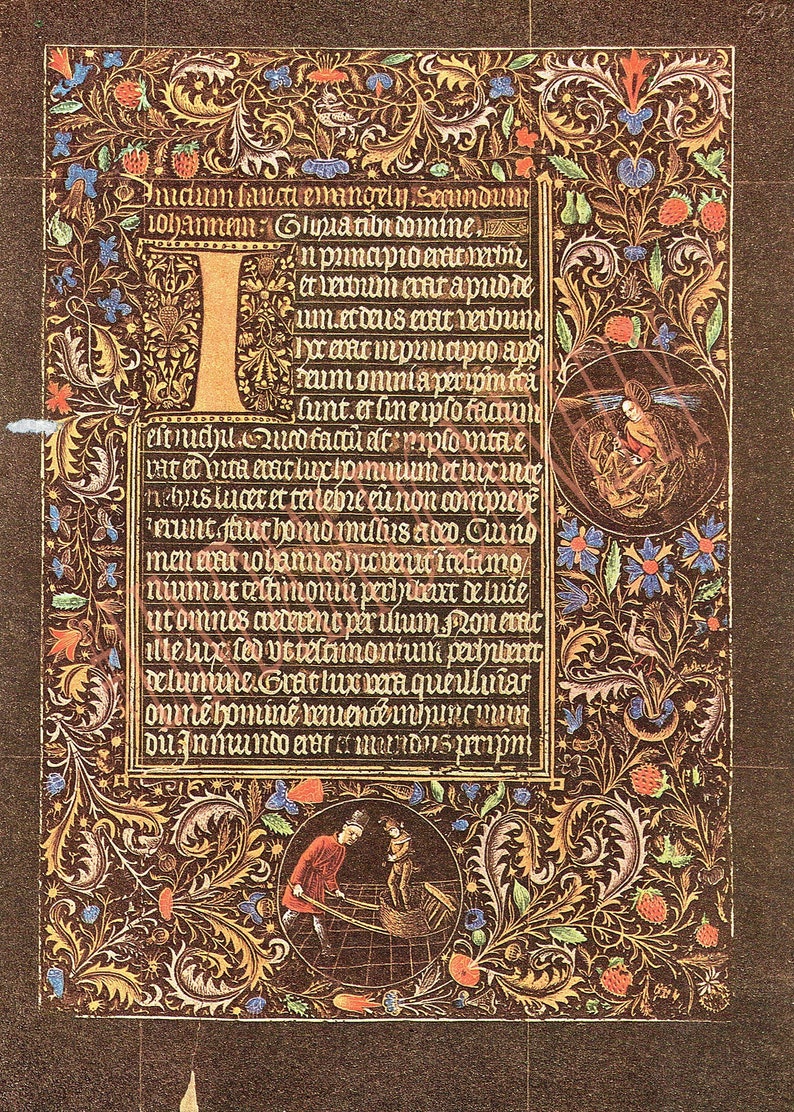 Inicium sancti ewangelij. Secundum
iohannem: Gloria tibi domine.
In principio erat verbū
et verbum erat apud de
um. et deus erat verbum
hoc erat in principio apō
deum omnia per ipm̄ fcā
sunt. et sine ipso factum
est nichil. Quod factū est in ipso vita e
rat et vita erat lux hominum et lux in te
nebris lucet et tenebre eū non comprehē
derunt. fuit homo missus a deo. Cui no
men erat iohannes hic venit ī testimo/
nium ut testimoniū perhiberet de lumīe
ut omnes crederent per illum. Non erat
ille lux: sed ut testimonium perhiberet
de lumine. Erat lux vera que illumīat
omnē hominē venientē in hunc mun
dū. In mundo erat et mundus per ipm̄